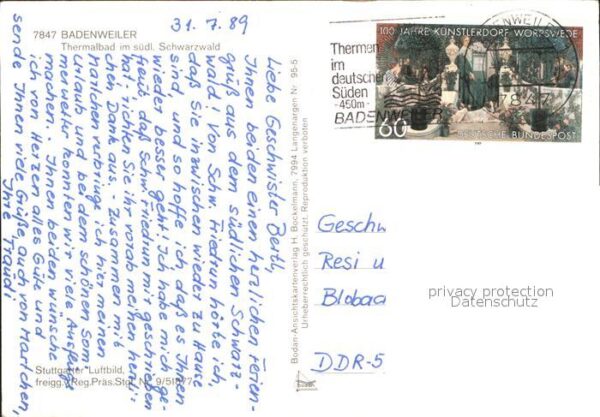 31.7.89
7847 BADENWEILER
Thermalbad im südl. Schwarzwald
Liebe Geschwister Berth,
Ihnen beiden einen herzlichen Ferien-
gruß aus dem südlichen Schwarz-
wald! Von Schw. Friedrun hörte ich,
daß Sie inzwischen wieder zu Hause
sind, und so hoffe ich, daß es Ihnen
wieder besser geht! Ich habe mich ge-
freut, daß Schw. Friedrun mir geschrieben
hat. richte Sie ihr vorab meinen herzli-
chen Dank aus. - Zusammen mit
Marlchen verbringe ich hier meinen
Urlaub und bei dem schönen Som
merwetter konnten wir viele Ausflüge
machen. Ihnen beiden wünsche
ich von Herzen alles Gute und
sende Ihnen viele Grüße, auch von Marlchen,
Ihre Traudi
Stuttgarter Luftbild,
freigg. Reg.Präs.Stgt. Nr. 9/51877
Bodan-Ansichtskartenverlag H. Bockelmann, 7994 Langenargen Nr. 95-5
Urheberrechtlich geschützt. Reproduktion verboten
Thermen
im
deutschen
Süden
-450m-
BADENWEILER
BADENWEILER
7847
100 JAHRE KÜNSTLERDORF WORPSWEDE
60
DEUTSCHE BUNDESPOST
Geschw
Resi u
Blobac
DDR-5
privacy protection
Datenschutz